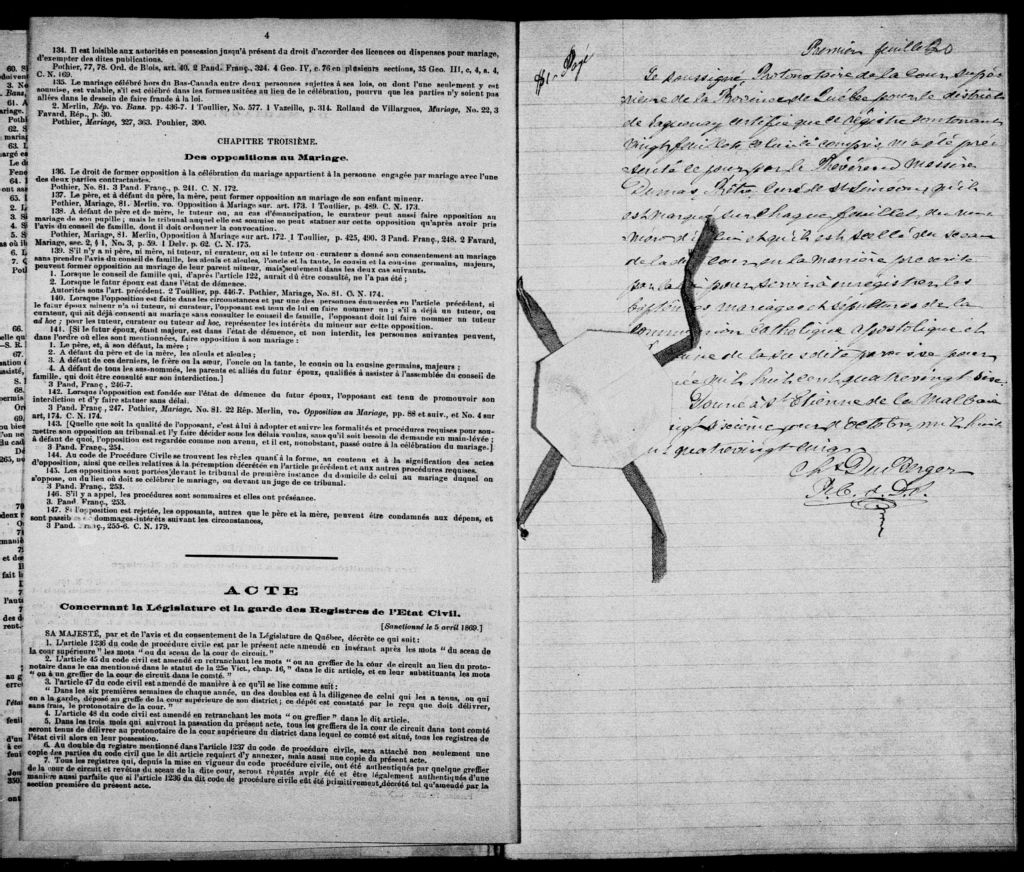 4
134. Il est loisible aux autorités en possession jusqu'à présent du droit d'accorder des licences ou dispenses pour mariage,
d'exempter des dites publications.
Pothier, 77, 78. Ord. de Blois, art. 40. 2 Pand. Franç., 324. 4 Geo. IV, c. 76 en plusieurs sections, 35 Geo. III, c, 4, s. 4,
C. N. 169.
135. Le mariage célébré hors du Bas-Canada entre deux personnes sujettes à ses lois, ou dont l'une seulement y est
soumise, est valable, s'il est célébré dans les formes usitées au lieu de la célébration, pourvu que les parties n'y soient pas
allées dans le dessein de faire fraude à la loi.
2. Merlin, Rép. vo. Bans. pp. 436-7. 1 Toullier, No. 577. 1 Vazeille, p. 314. Rolland de Villargues, Mariage, No. 22, 3
Favard, Rép., p. 30.
Pothier, Mariage, 327, 363. Pouhier, 390.
CHAPITRE TROISIÈME.
Des oppositions au Mariage.
136. Le droit de former opposition à la célébration du mariage appartient à la personne engagée par mariage avec l'une
des deux parties contractantes.
Pothier, No. 81. 3 Pand. Franç., p. 241. C. N. 172.
137. Le père, et à défaut du père, la mère, peut former opposition au mariage de son enfant mineur.
Pothier, Mariage, 81. Merlin. vo. Opposition à Mariage sur. art. 173. 1 Toullier, p. 489. C. N. 173.
138. A défaut de père et de mère, le tuteur ou, au cas d'émancipation, le curateur peut aussi faire opposition au
mariage de son pupille ; mais le tribunal auquel elle est soumise ne peut statuer sur cette opposition qu'après avoir pris
l'avis du conseil de famille, dont il doit ordonner la convocation.
Pothier, Mariage, 81. Merlin, Opposition à Mariage sur art. 172. 1 Toullier, p. 425, 490. 3 Pand. Franç., 248. 2 Favard,
Mariage, sec. 2, § 1, No. 3, p. 59. 1 Delv. p. 62. C. N. 175.
139. S'il n'y a ni père, ni mère, ni tuteur, ni curateur, ou si le tuteur ou curateur a donné son consentement au mariage
sans prendre l'avis du conseil de famille, les aïeuls et aïeules, l'oncle et la tante, le cousin et la cousine germains, majeurs,
peuvent former opposition au mariage de leur parent mineur, mais seulement dans les deux cas suivants.
1. Lorsque le conseil de famille qui, d'après l'article 122, aurait dû être consulté, ne l'a pas été ;
2. Lorsque le futur époux est dans l'état de démence.
Autorités sous l'art. précédent. 2 Toullier, pp. 446-7. Pothier, Mariage, No. 81. C. N. 174.
140. Lorsque l'opposition est faite dans les circonstances et par une des personnes énumérées en l'article précédent, si
le futur époux mineur n'a ni tuteur, ni curateur, l'opposant est tenu de lui en faire nommer un ; s'il a déjà un tuteur, ou
curateur, qui ait déjà consenti au mariage sans consulter le conseil de famille, l'opposant doit lui faire nommer un tuteur
ad hoc ; pour les tuteur, curateur ou tuteur ad hoc, représenter les intérêts du mineur sur cette opposition.
141. [Si le futur époux, étant majeur, est dans l'état de démence, et non interdit, les personnes suivantes peuvent,
dans l'ordre où elles sont mentionnées, faire opposition à son mariage :
1. Le père, et, à son défaut, la mère ;
2. A défaut du père et de la mère, les aïeuls et aïeules ;
3. A défaut de ces derniers, le frère ou la sœur, l'oncle ou la tante, le cousin ou la cousine germains, majeurs ;
4. A défaut de tous les sus-nommés, les parents et alliés du futur époux, qualifiés à assister à l'assemblée du conseil de
famille, qui doit être consulté sur son interdiction.]
3 Pand. Franç., 246-7.
142. Lorsque l'opposition est fondée sur l'état de démence du futur époux, l'opposant est tenu de promouvoir son
interdiction et d'y faire statuer sans délai.
3 Pand. Franç., 247. Pothier, Mariage. No. 81. 22 Rép. Merlin, vo. Opposition au Mariage, pp. 88 et suiv., et No. 4 sur
art, 174. C. N. 174.
143. [Quelle que soit la qualité de l'opposant, c'est à lui à adopter et suivre les formalités et procédures requises pour sou-
mettre son opposition au tribunal et l'y faire décider sous les délais voulus, sans qu'il soit besoin de demande en main-levée ;
à défaut de quoi, l'opposition est regardée comme non avenu, et il est, nonobstant, passé outre à la célébration du mariage.]
3 Pand. Franç., 254.
144. Au code de Procédure Civile se trouvent les règles quant à la forme, au contenu et à la signification des actes
d'opposition, ainsi que celles relatives à la péremption décrétée en l'article précédent et aux autres procédures requises.
145. Les oppositions sont portées devant le tribunal de première instance du domicile de celui au mariage duquel on
s'oppose, ou du lieu où doit se célébrer le mariage, ou devant un juge de ce tribunal.
3 Pand. Franç., 253.
146. S'il y a appel, les procédures sont sommaires et elles ont préséance.
3. Pand. Franç., 253.
147. Si l'opposition est rejetée, les opposants, autres que le père et la mère, peuvent être condamnés aux dépens, et
sont passibles de dommages-intérêts suivant les circonstances,
3 Pand. Franç., 255-6. C. N. 179.
ACTE
Concernant la Législature et la garde des Registres de l'Etat Civil.
[Sanctionné le 5 avril 1869.]
SA MAJESTÉ, par et de l'avis et du consentement de la Législature de Québec, décrète ce qui suit :
1. L'article 1236 du code de procédure civile est par le présent acte amendé en insérant après les mots " du sceau de
la cour supérieure " les mots " ou du sceau de la cour de circuit."
2. L'article 45 du code civil est amendé en retranchant les mots " ou au greffier de la cour de circuit au lieu du proto-
notaire dans le cas mentionné dans le statut de la 25e Vict., chap. 16, " dans le dit article, et en leur substituants les mots
" ou à un greffier de la cour de circuit dans le comté. "
3. l'article 47 du code civil est amendé de manière à ce qu'il se lise comme suit :
" Dans les six premières semaines de chaque année, un des doubles est à la diligence de celui qui les a tenus, ou qui
en a la garde, déposé au greffe de la cour supérieure de son district ; ce dépôt est constaté par le reçu que doit délivrer,
sans frais, le protonotaire de la cour. "
4. L'article 48 du code civil est amendé en retranchant les mots " ou greffier " dans le dit article.
5. Dans les trois mois qui suivront la passation du présent acte, tous les greffiers de la cour de circuit dans tout comté
seront tenus de délivrer au protonotaire de la cour supérieure du district dans lequel ce comté est situé, tous les registres de
l'état civil alors en leur possession.
6. Au double du registre mentionné dans l'article 1237 du code de procédure civile, sera attaché non seulement une
copie des parties du code civil que le dit article requiert d'y annexer, mais aussi une copie du présent acte.
7. Tous les registres qui, depuis la mise en vigueur du code procédure civile, ont été authentiqués par quelque greffier
de la cour de circuit et revêtus du sceau de la dite cour, seront réputés avoir été et être légalement authentiqués d'une
manière aussi parfaite que si l'article 1236 du dit code de procédure civile eût été primitivement décrété tel qu'amendé par la
section première du présent acte.
Premier feuillet
Le soussigné, Protonotaire de la Cour Supé
rieure de la Province de Québec pour le district
de Saguenay certifie que ce régistre contenant
vingt feuillets celui-ci compris m'a été pré
senté ce jour par le Révérend messire
Dumas Ptre Curé de St Siméon, qu'il
est marqué sur chaque feuillet du numé
qu'il est scellé du sceau
de la dite Cour en la manière prescrite
par la loi pour servir à enregistrer les
baptêmes mariages et sépultures de la
Communion Catholique Apostolique et
Romaine de la susdite paroisse pour
mil huit cent quatrevingt six
Donné à St Etienne de la Malbaie
jour d'Octobre mil huit
quatrevingt cinq
Chs DuBerger
P. C. S. D. S.